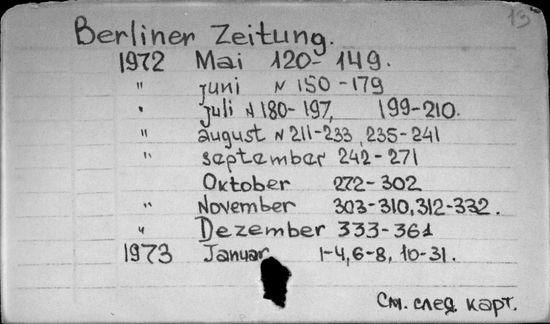 13
Berliner Zeitung.
1972 Mai 120-149.
" juni N 150-179
" juli N 180-197, 199-210.
" august N 211-233, 235-241
" september 242-271
Oktober 272-302
" November 303-310, 312-332.
" Dezember 333-361
1973 Januar 1-4, 6-8, 10-31.
См. след. карт.